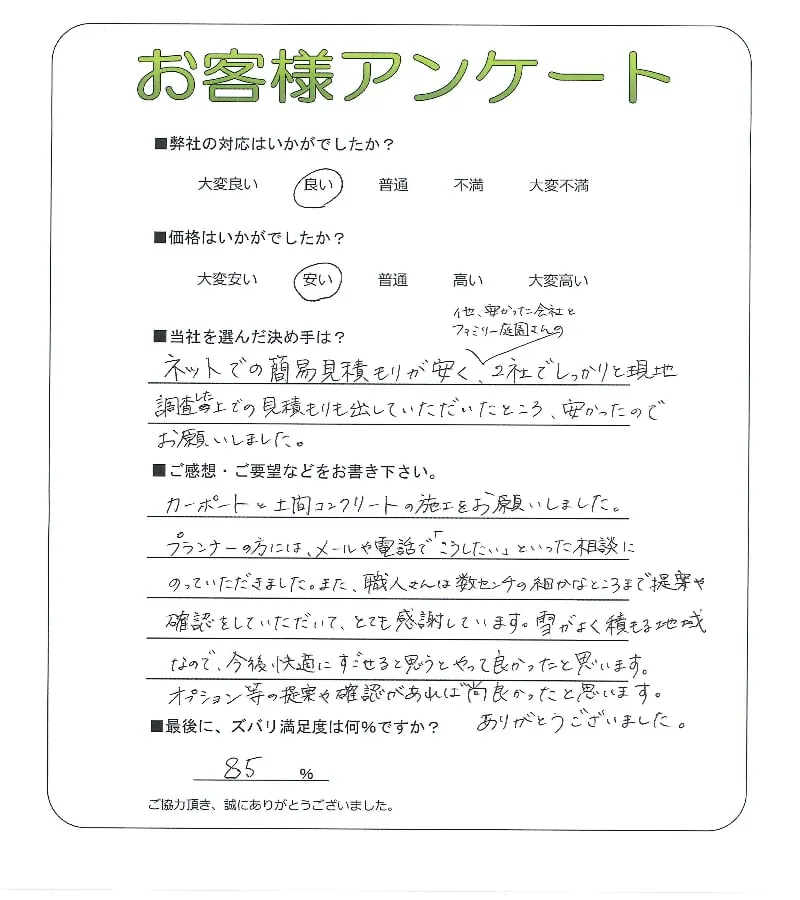 お客様アンケート
■弊社の対応はいかがでしたか？
大変良い 良い 普通 不満 大変不満
■価格はいかがでしたか？
大変安い 安い 普通 高い 大変高い
他、安かった会社と
ファミリー庭園さんの
■当社を選んだ決め手は？
ネットでの簡易見積もりが安く、2社でしっかりと現地
調査した上での見積もりも出していただいたところ、安かったので
お願いしました。
■ご感想・ご要望などをお書き下さい。
カーポートと土間コンクリートの施工をお願いしました。
プランナーの方には、メールや電話で「こうしたい」といった相談に
のっていただきました。また、職人さんは数センチの細かなところまで提案や
確認をしていただいて、とても感謝しています。雪がよく積もる地域
なので、今後快適にすごせると思うとやって良かったと思います。
オプション等の提案や確認があれば尚良かったと思います。
■最後に、ズバリ満足度は何％ですか？
ありがとうございました。
85 ％
ご協力頂き、誠にありがとうございました。